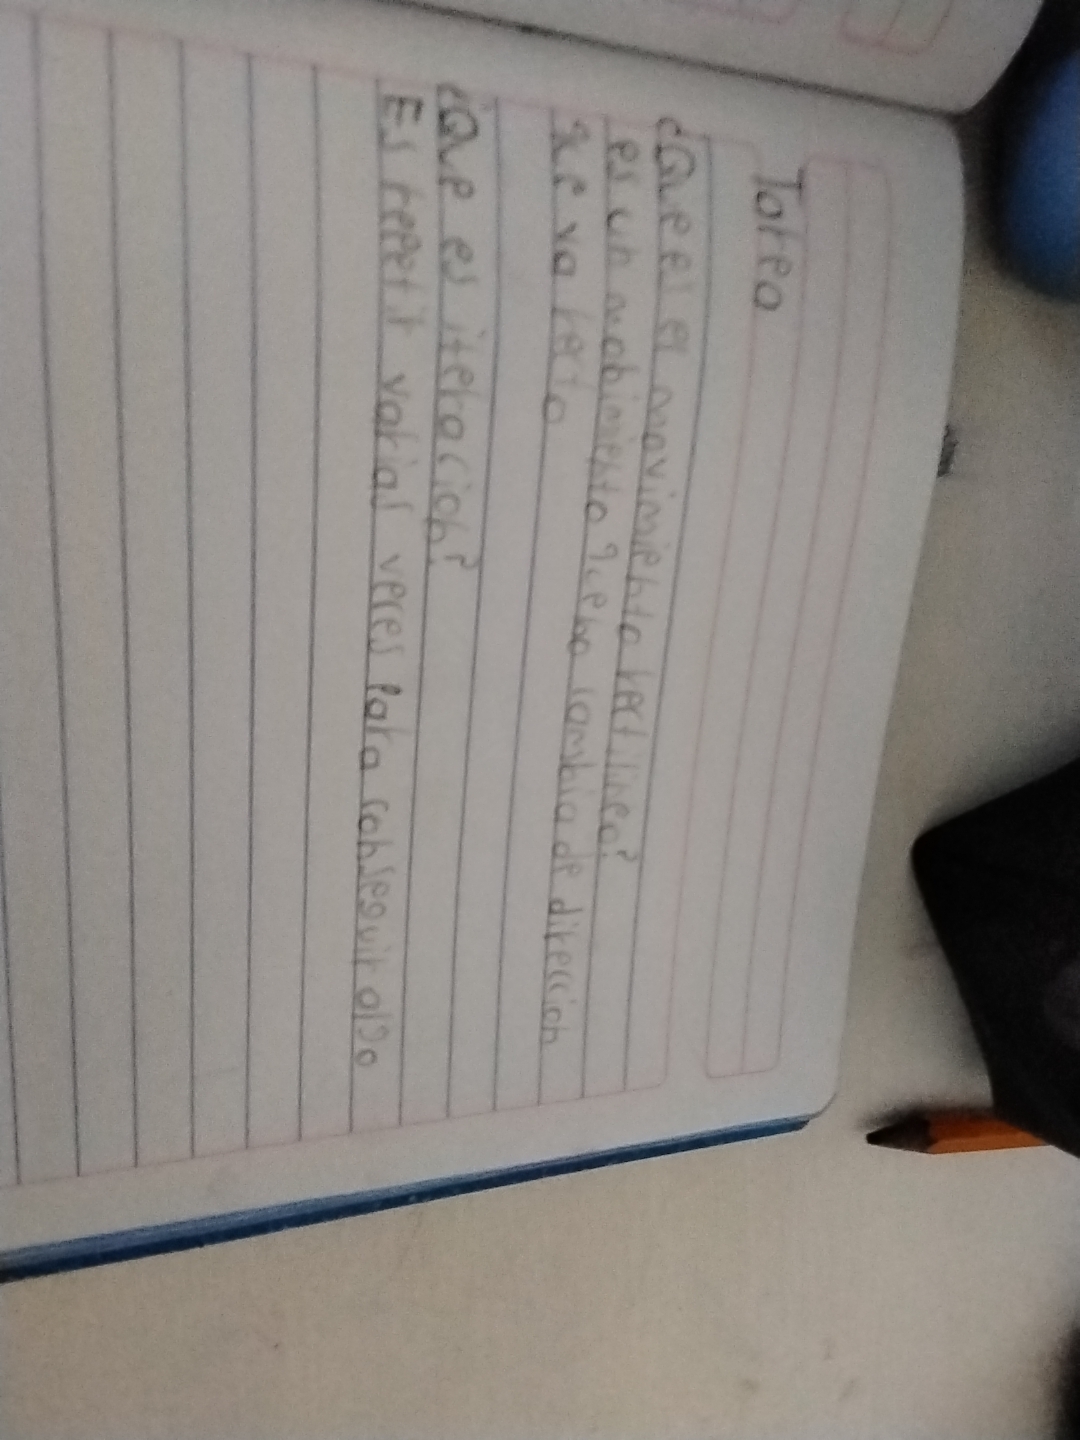 Tarea
¿Que el es movimiento rectilineo?
es un mobimiento que no cambia de direccion
se va recto
¿Que es iteracion?
Es repetir varias veces para conseguir algo